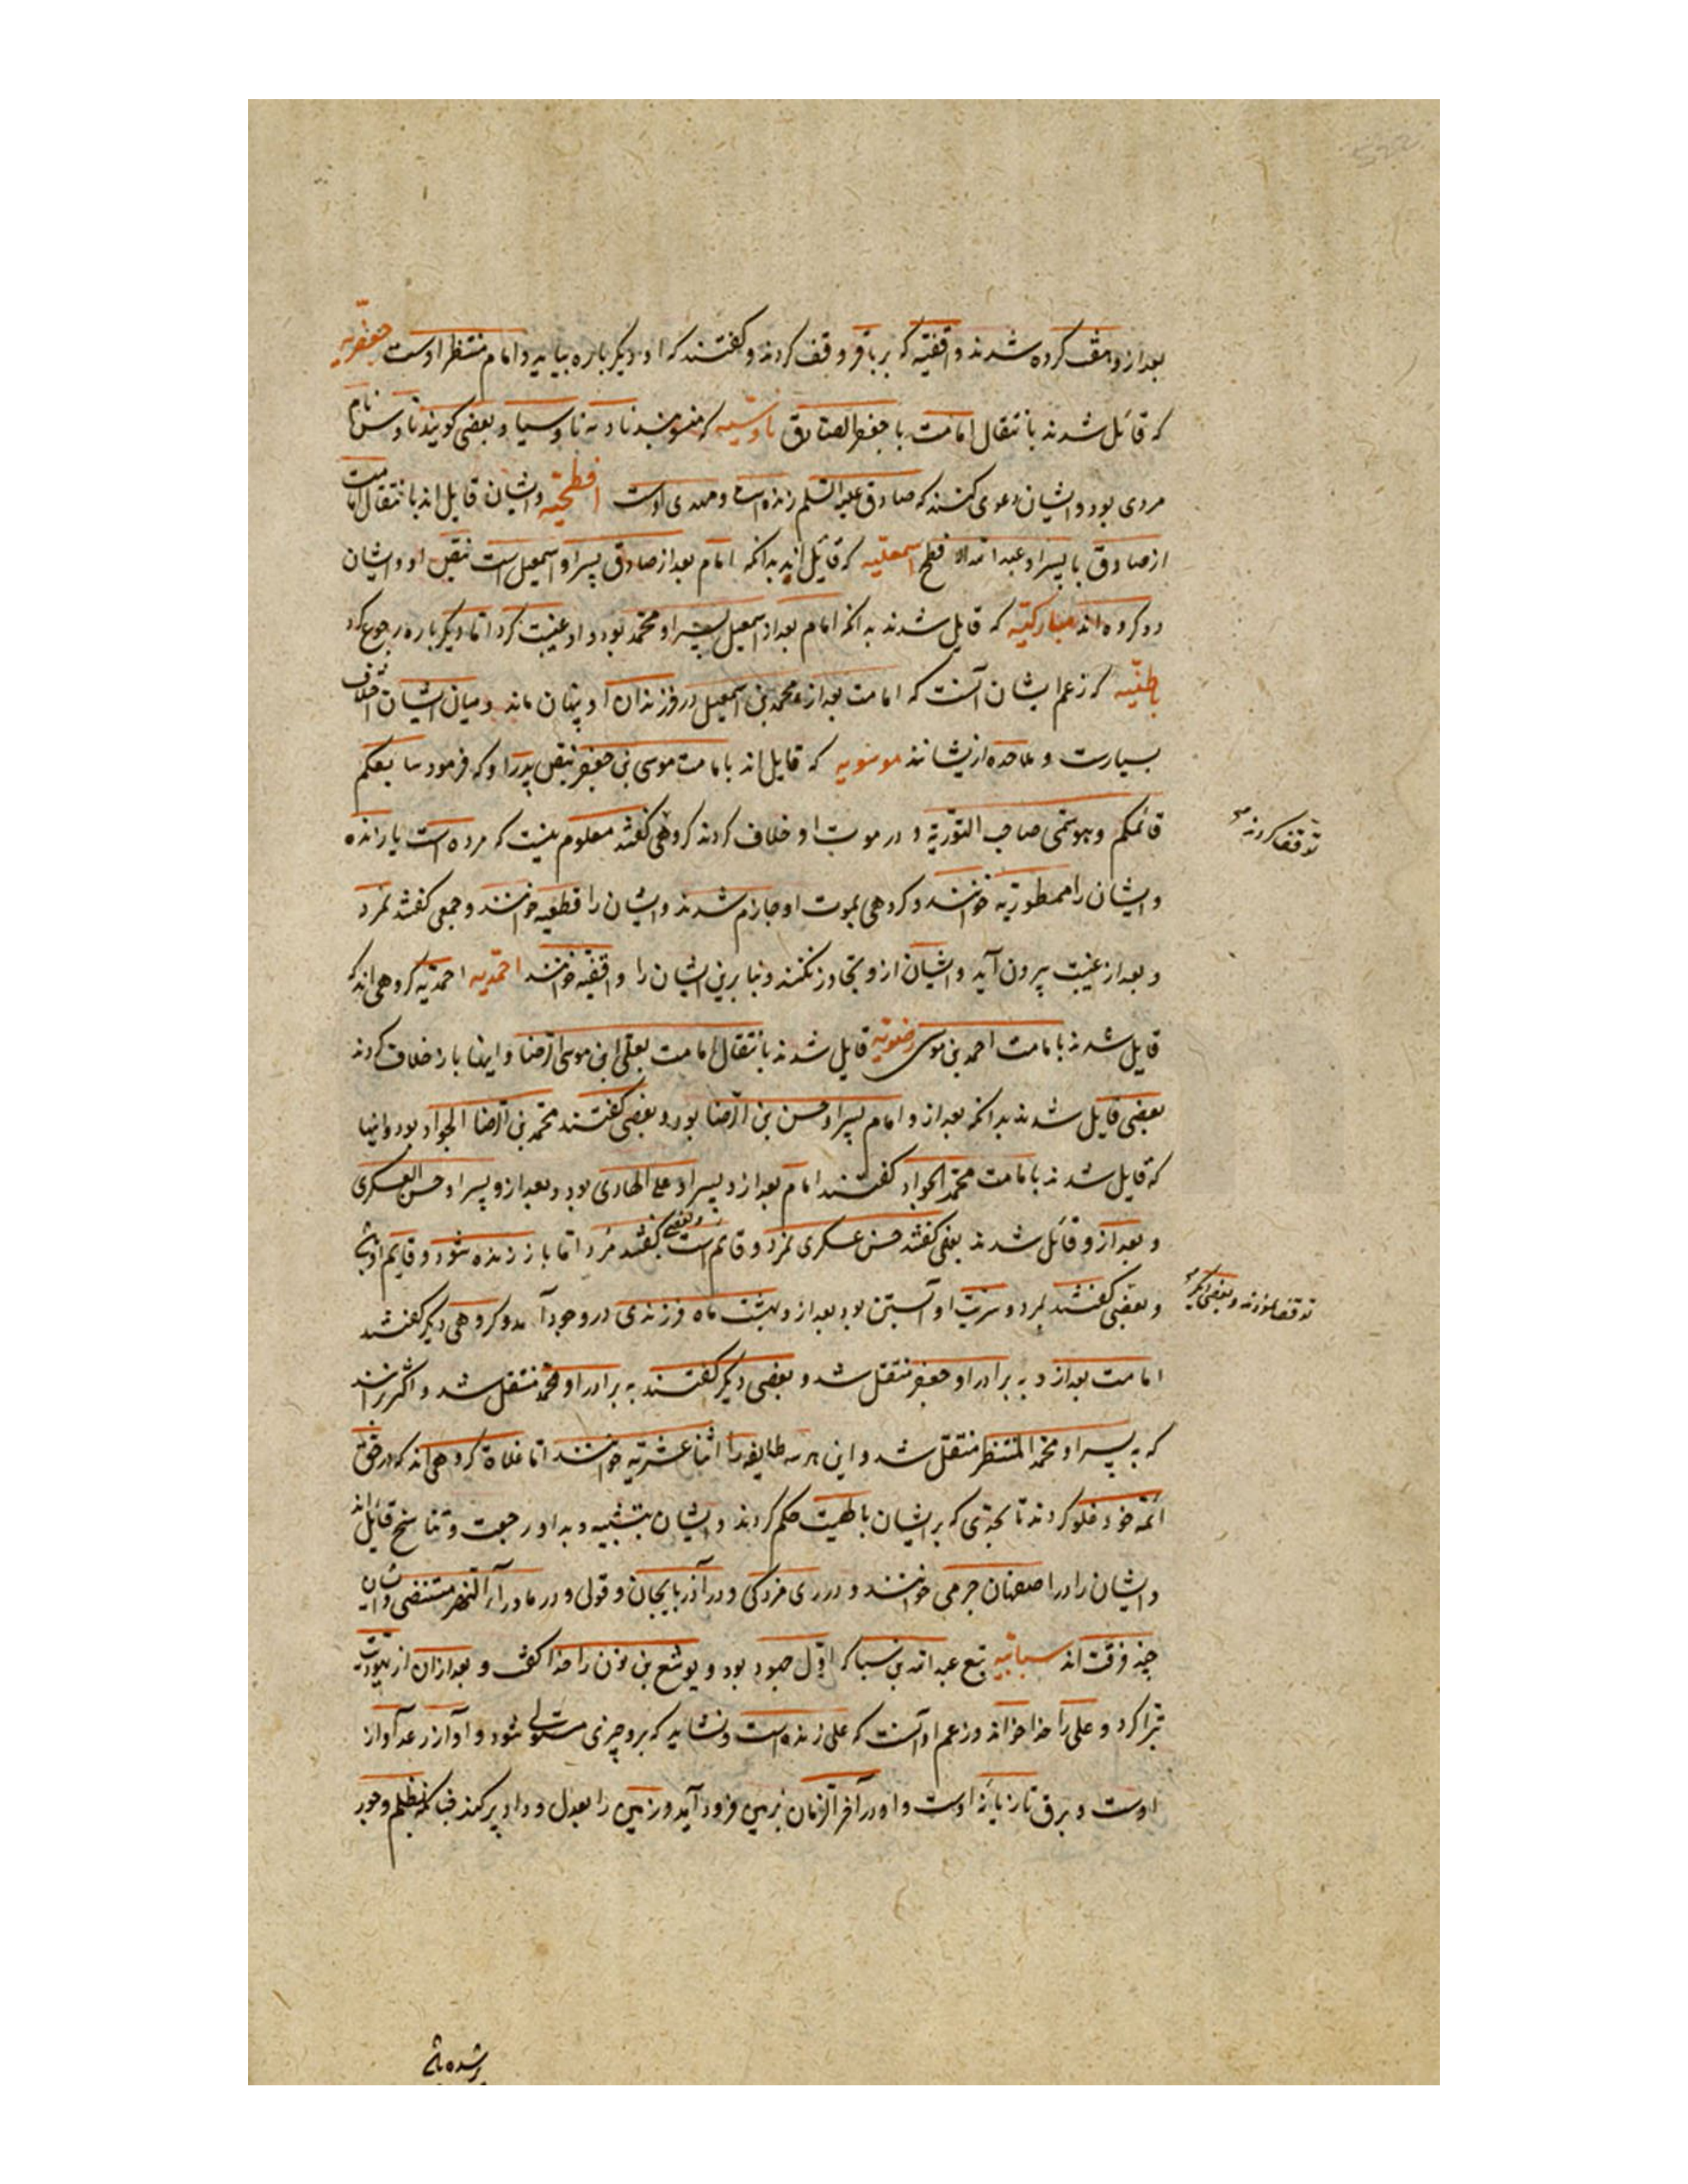 بعد ازو متفق کرده شدند واقفیه که بر باقر وقف کردند و گفتند که او دیگر باره بیاید و امام منتظر اوست جعفریه
که قائل شدند بانتقال امامت با جعفر الصادق ناوسیه که منسوبند نا و بعضی کویند ناوس نام
مردی بود و ایشان دعوی کنند که صادق علیه السلم زنده است و مهدی اوست افطحیه و ایشان قایل اند بانتقال امامت
از صادق با پسر او عبد الله الافطح اسمعلیه که قائل اند بدانکه امام بعد از صادق پسر او اسمعیل است بنص او و ایشان
دو کروه اند مبارکیه که قایل شدند بدانکه امام بعد از اسمعیل پسر او محمد بود و او غیبت کرد اما دیکر باره رجوع کرد
باطنیه که زعم ایشان آنست که امامت بعد از محمد بن اسمعیل در فرزندان او پنهان ماند و میان ایشان اختلاف
بسیارست و ملاحده ازیشانند موسویه که قایل اند بامامت موسی بن جعفر بنص پدر او که فرمود سابعکم
قائمکم وهو سمی صاحب التوریة و در موت او خلاف کردند کروهی گفتند معلوم نیست که مرده است یا زنده
توقف کردند
و ایشان را ممطوریه خوانند و کروهی بموت او جازم شدند و ایشان را قطعیه خوانند و جمعی گفتند نمرد
و بعد از غیبت بیرون آید و ایشان ازو تجاوز نکنند و بنا برین ایشان را واقفیه خوانند احمدیه احمدیه کروهی اند که
قایل شدند بامامت احمد بن موسی رضویه قایل شدند بانتقال امامت بعلی ابن موسی الرضا و اینها باز خلاف کردند
بعضی قایل شدند بدانکه بعد ازو امام پسر او حسن بن الرضا بود و بعضی گفتند محمد بن الرضا الجواد بود و اینها
که قایل شدند بامامت محمد الجواد گفتند امام بعد ازو پسر او علی الهادی بود و بعد ازو پسر او حسن العسکری
و بعد ازو قائل شدند بعضی گفتند حسن عسکری نمرد و قائم است و بعضی گفتند مرد اما باز زنده شود و قایم او باشد
و بعضی گفتند بمرد و سریت او آبستن بود بعد ازو بهشت ماه فرزندی در وجود آمد و کروهی دیکر گفتند
توقف نمودند و بعضی دیگر
امامت بعد ازو به برادر او جعفر منتقل شد و بعضی دیکر گفتند به برادر او محمد منتقل شد و اکثر برانند
که به پسر او محمد المنتظر منتقل شد و این هر سه طایفه را اثنا عشریه خوانند اما غلاة کروهی اند که در حق
ائمه خود غلو کردند تا بحدی که بر ایشان بالهیت حکم کردند و ایشان بتشبیه و بدا و رجعت و تناسخ قائل اند
و ایشان را در اصفهان خرمی خوانند و در ری مزدکی و در آذربایجان و قولی و در ماورآء النهر و ایشان
چند فرقت اند سبائیه تبع عبد الله بن سبا که اول جهود بود و یوشع بن نون را خدا گفتی و بعد ازان از یهودیت
تبرا کرد و علی را خدا خواند و زعم او آنست که علی زنده است و نشاید که برو چیزی مستولی شود و آواز رعد آواز
اوست و برق تازیانه اوست و او در آخر الزمان بزمین فرود آید و زمین را بعدل و داد پر کند چنانکه بظلم و جور
پر شده باشد